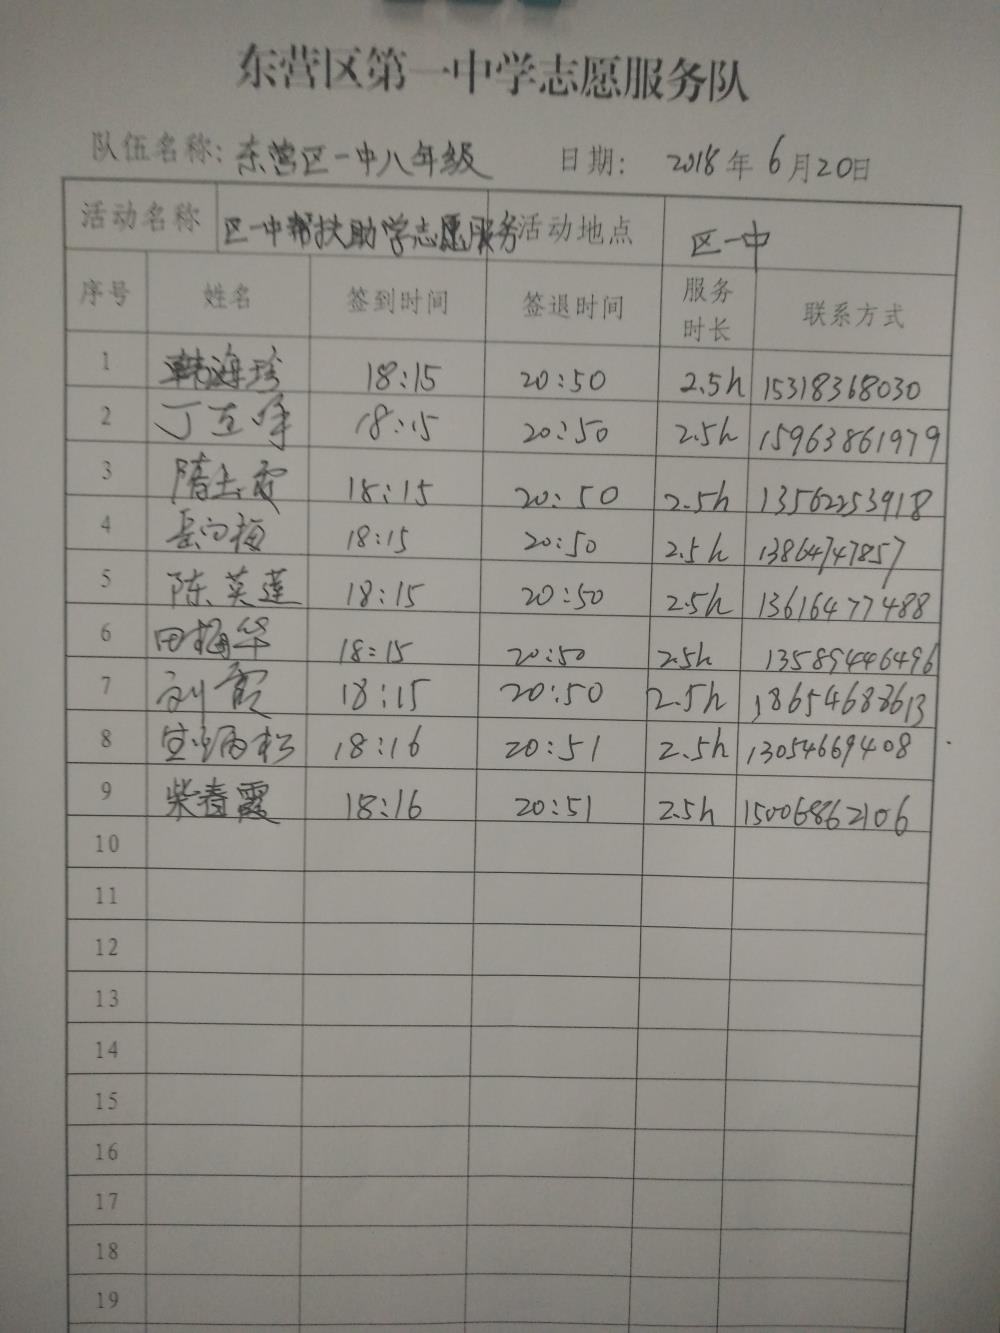 东营区第一中学志愿服务队
队伍名称: 东营区一中八年级 日期: 2018年6月20日
活动名称 区一中帮扶助学志愿服务 活动地点 区一中
序号 姓名 签到时间 签退时间 服务时长 联系方式
1 韩海珍 18:15 20:50 2.5h 15318368030
2 丁 18:15 20:50 2.5h 15963861979
3 隋 18:15 20:50 2.5h 13562253918
4 岳向梅 18:15 20:50 2.5h 13864747857
5 陈英莲 18:15 20:50 2.5h 13616477488
6 田梅华 18:15 20:50 2.5h 13589446496
7 刘霞 18:15 20:50 2.5h 18654688613
8 18:16 20:51 2.5h 13054669408
9 柴春霞 18:16 20:51 2.5h 15006862106
10
11
12
13
14
15
16
17
18
19